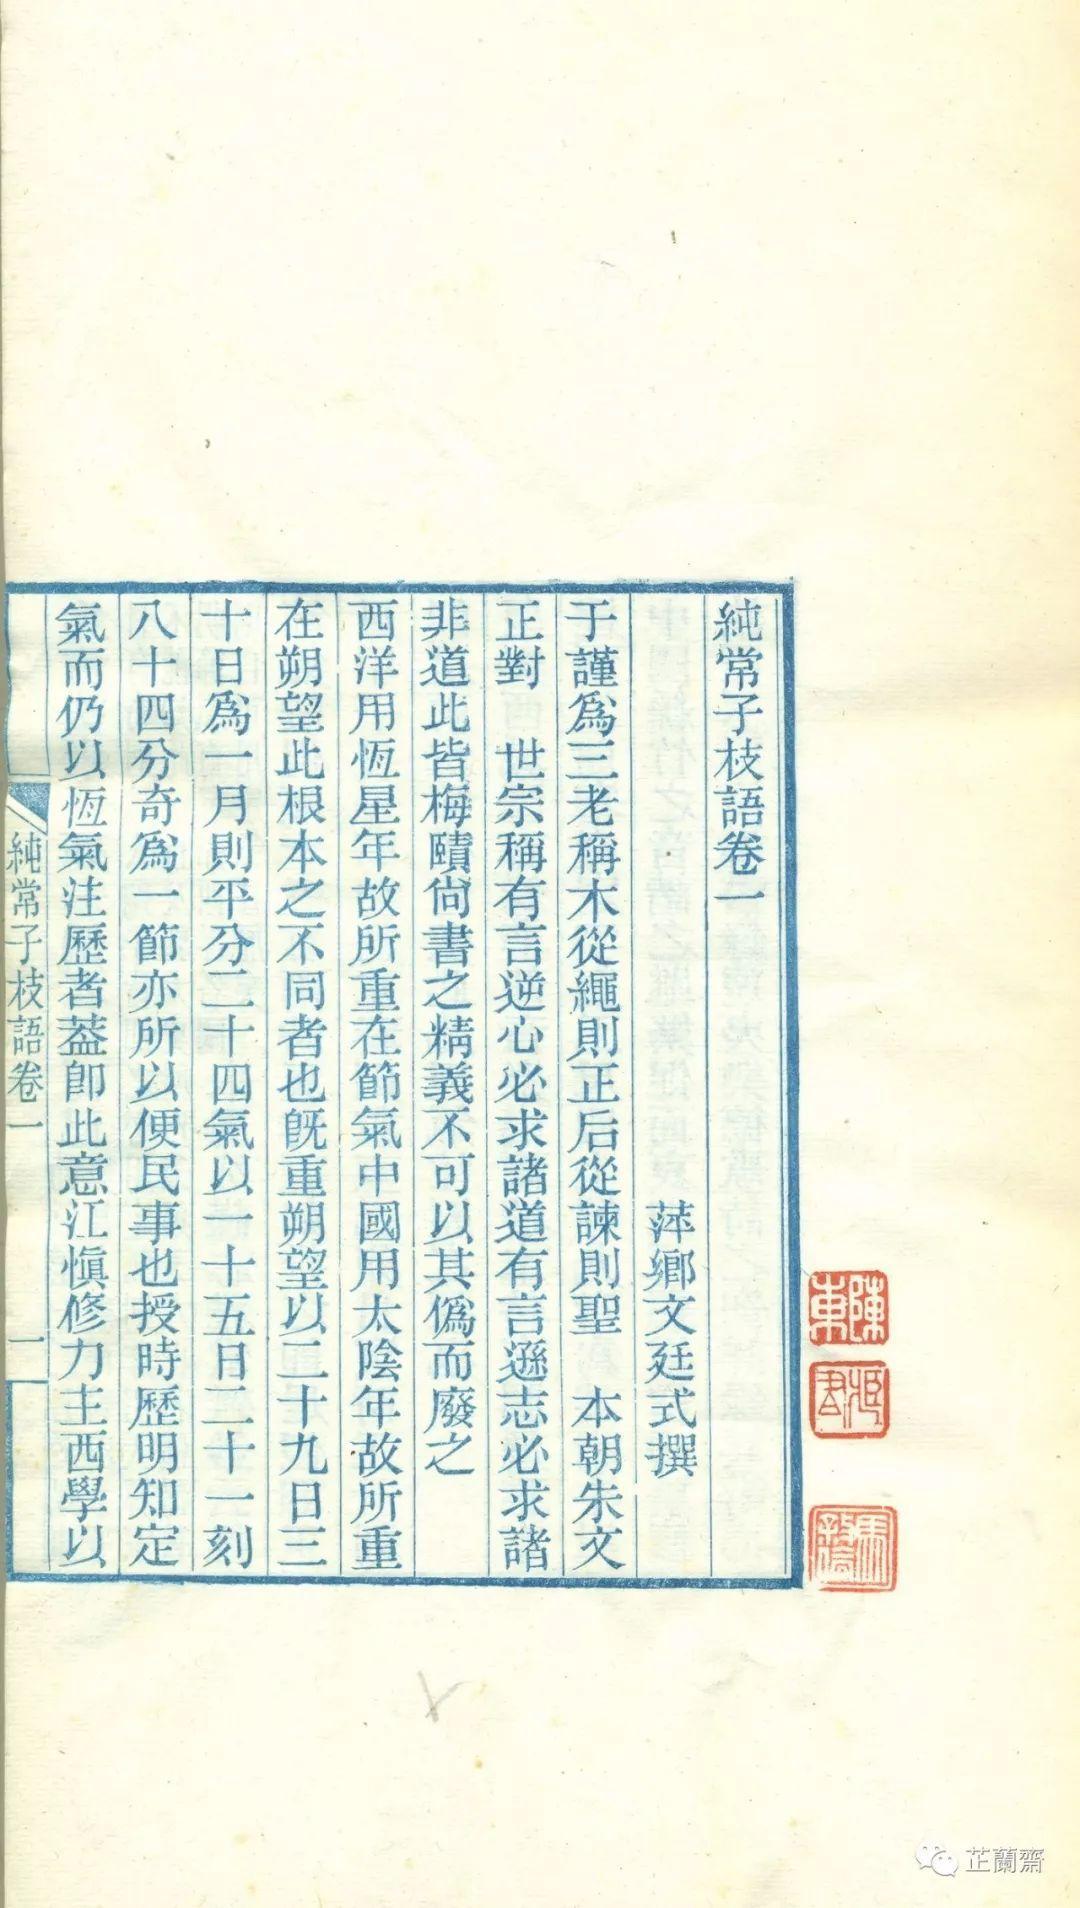 純常子枝語卷一
萍鄉文廷式撰
于謹爲三老稱木從繩則正后從諫則聖　本朝朱文
正對　世宗稱有言逆心必求諸道有言遜志必求諸
非道此皆梅賾尙書之精義不可以其僞而廢之
西洋用恆星年故所重在節氣中國用太陰年故所重
在朔望此根本之不同者也旣重朔望以二十九日三
十日爲一月則平分二十四氣以一十五日二十一刻
八十四分奇爲一節亦所以便民事也授時歷明知定
氣而仍以恆氣注歷者葢卽此意江愼修力主西學以
純常子枝語卷一
一
陳東
芷蘭齋